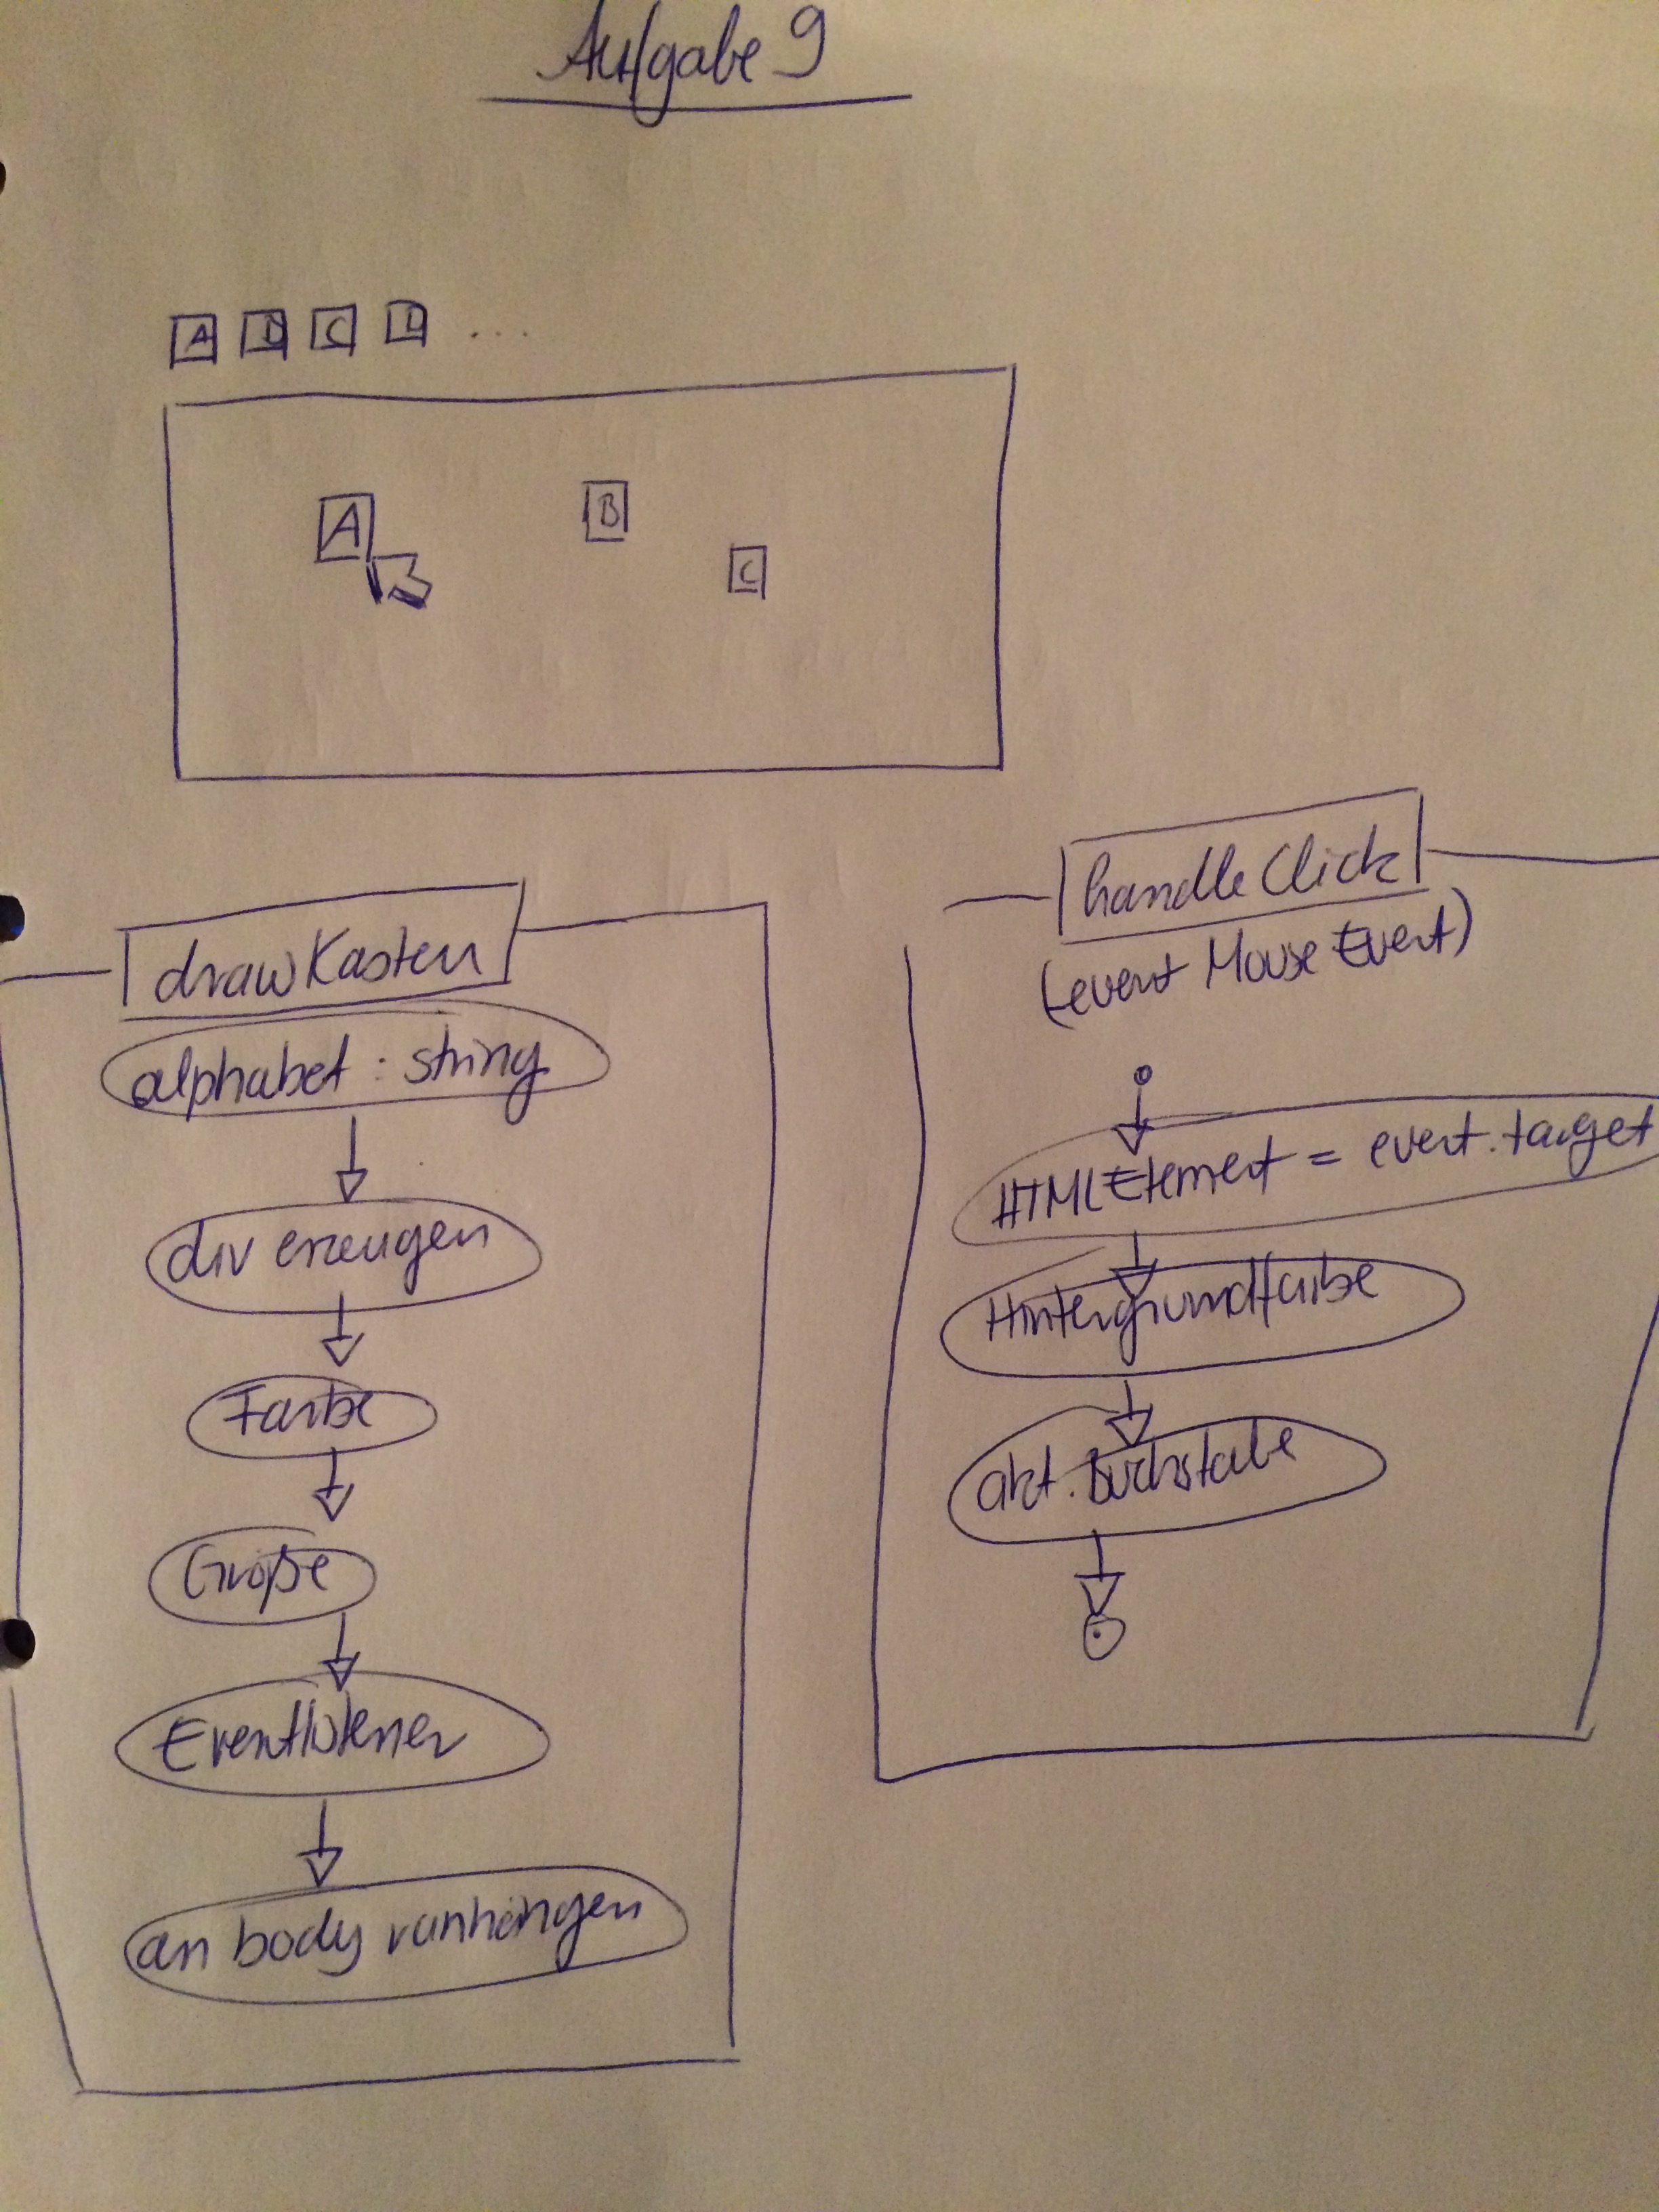 Aufgabe 9
A B C D ...
A
B
C
drawKasten
alphabet : string
div erzeugen
Farbe
Größe
Eventlistener
an body ranhängen
handleClick
(event MouseEvent)
HTMLElement = event.target
Hintergrundfarbe
akt. Buchstabe